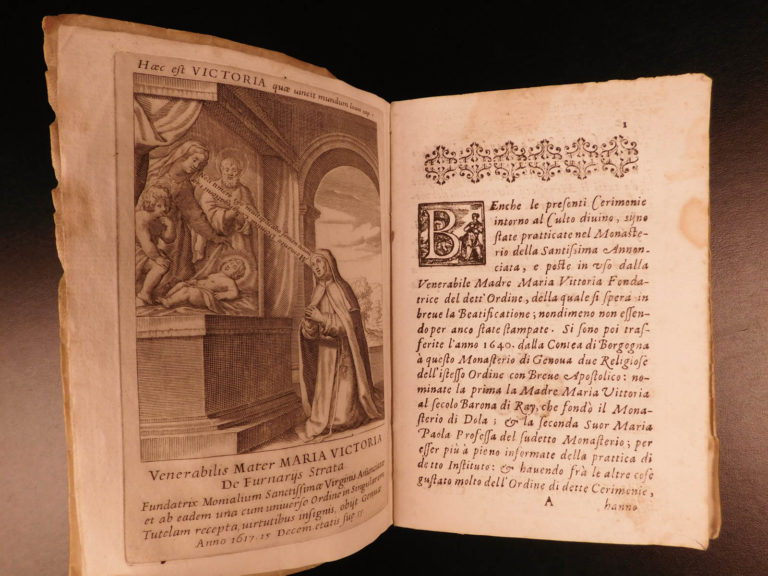 Hæc est VICTORIA quæ uincit mundum
Venerabilis Mater MARIA VICTORIA
De Furnarys Strata
Fundatrix Monialium Sanctissimæ Virginis Annuntiatæ
et ab eadem una cum uniuerso Ordine in Singularem
Tutelam recepta, uirtutibus insignis, obijt Genuæ
Anno 1617. 15 Decem. ætatis suæ
1
BEnche le presenti Cerimonie
intorno al Culto diuino, sijno
state pratticate nel Monaste-
rio della Santissima Annon-
ciata, e poste in vso dalla
Venerabile Madre Maria Vittoria Fonda-
trice del dett'Ordine, della quale si spera in
breue la Beatificatione; nondimeno non essen-
do per anco state stampate. Si sono poi tras-
ferite l'anno 1640. dalla Contea di Borgogna
à questo Monasterio di Genoua due Religiose
dell'istesso Ordine con Breue Apostolico: no-
minate la prima la Madre Maria Vittoria
al secolo Barona di Ray, che fondò il Mona-
sterio di Dola; & la seconda Suor Maria
Paola Professa del sudetto Monasterio; per
esser più à pieno informate della prattica di
detto Instituto: & hauendo frà le altre cose
gustato molto dell'Ordine di dette Cerimonie,
A
hanno